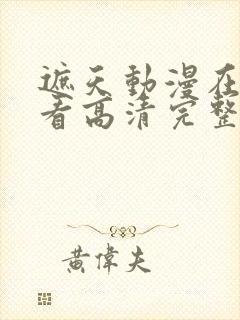 遮天動漫在
看高清完整
黃偉夫